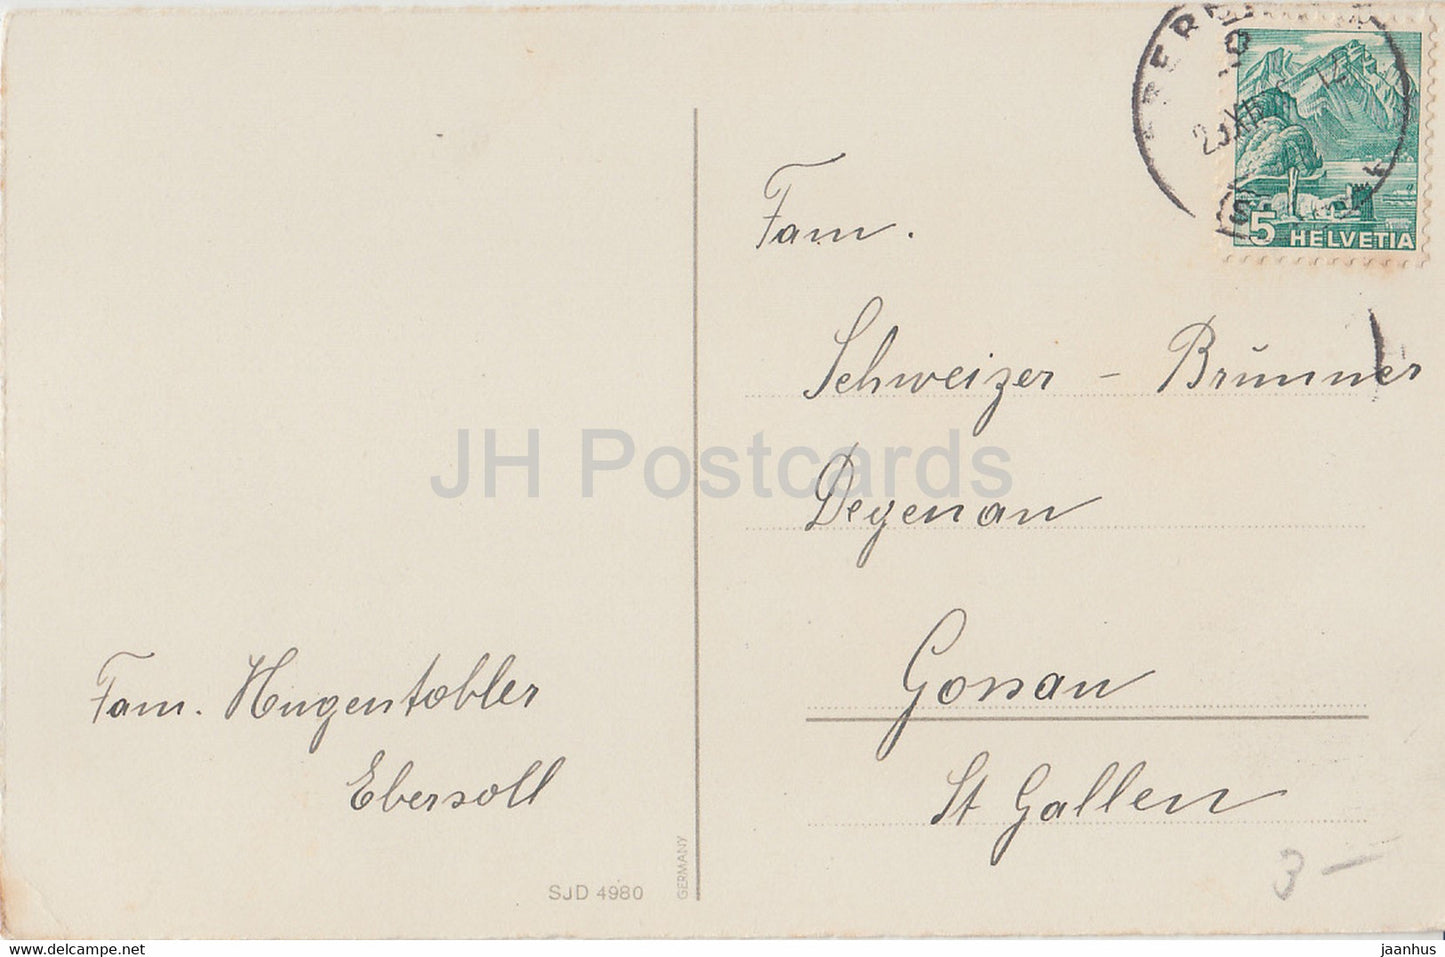 Fam.
Schweizer - Brunner
Degenau
Gossau
St Gallen
Fam. Hugentobler
Ebersoll
SJD 4980
GERMANY
5 HELVETIA
JH Postcards
3 -
https://www.delcampe.net
jaanhus